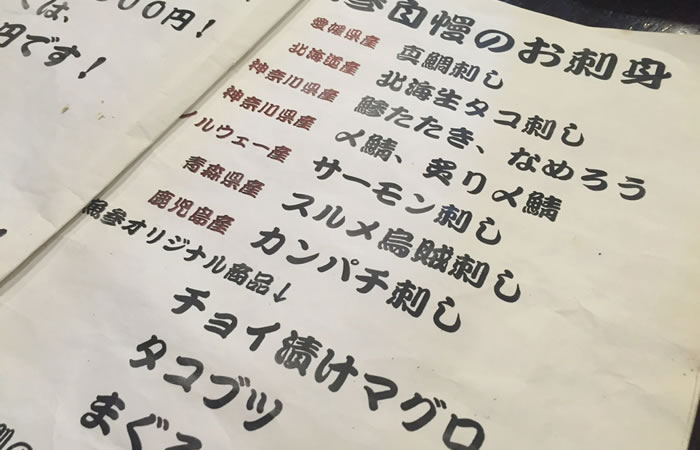 000円!
くは、
円です!
魚参自慢のお刺身
愛媛県産 真鯛刺し
北海道産 北海生タコ刺し
神奈川県産 鯵たたき、なめろう
神奈川県産 〆鯖、炙り〆鯖
ノルウェー産 サーモン刺し
青森県産 スルメ烏賊刺し
鹿児島産 カンパチ刺し
魚参オリジナル商品↓
チョイ漬けマグロ
タコブツ
まぐろ